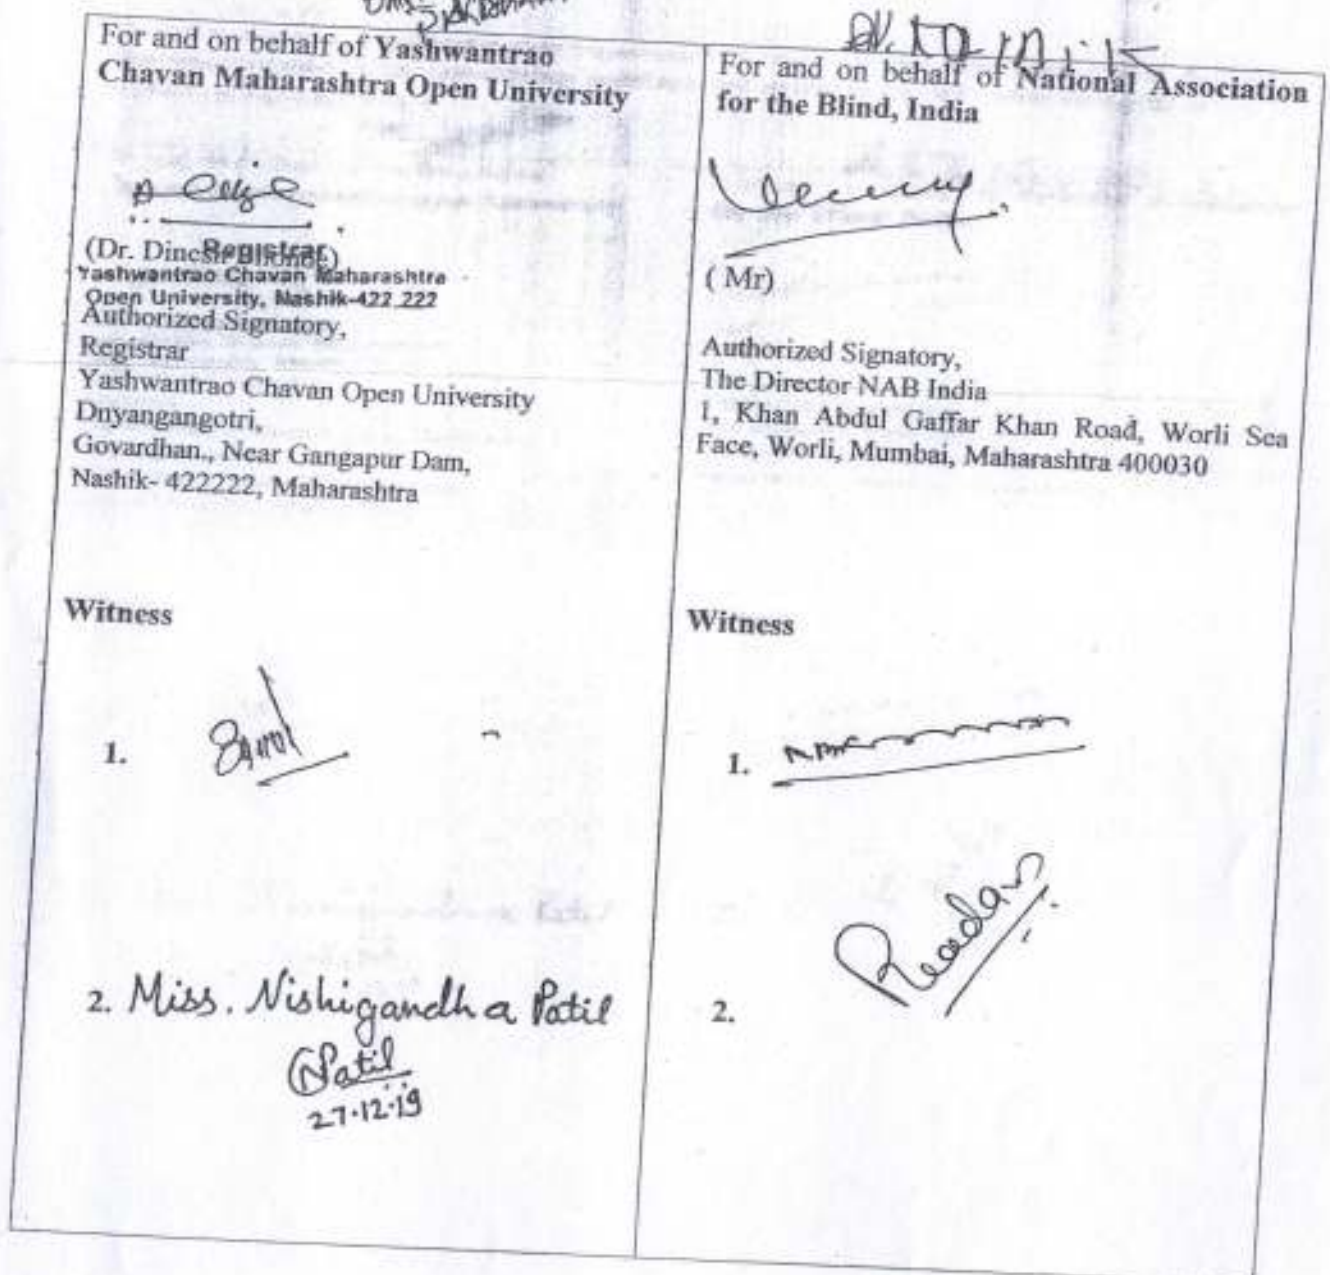 For and on behalf of Yashwantrao
Chavan Maharashtra Open University
(Dr. Dinesh
Registrar
Yashwantrao Chavan Maharashtra
Open University, Nashik-422 222
Authorized Signatory,
Registrar
Yashwantrao Chavan Open University
Dnyangangotri,
Govardhan., Near Gangapur Dam,
Nashik- 422222, Maharashtra
Witness
1.
2. Miss. Nishigandha Patil
Patil
27.12.19
For and on behalf of National Association
for the Blind, India
( Mr)
Authorized Signatory,
The Director NAB India
1, Khan Abdul Gaffar Khan Road, Worli Sea
Face, Worli, Mumbai, Maharashtra 400030
Witness
1.
2.